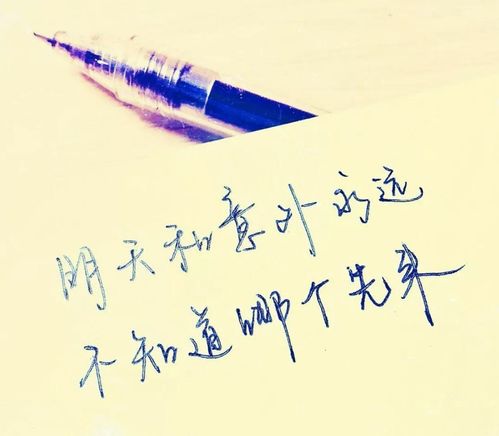 明天和意外永远
不知道哪个先来